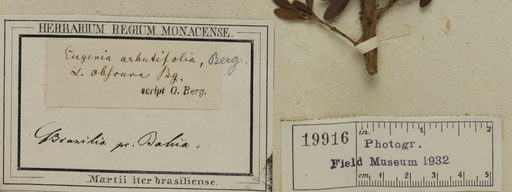 HERBARIUM REGIUM MONACENSE.
Eugenia arbutifolia, Berg.
α. obscura Bg.
script O. Berg.
Brasilia pr. Bahia.
Martii iter brasiliense.
19916
in. 1 2
Photogr.
Field Museum 1932
cm. 1 2 3 4 5